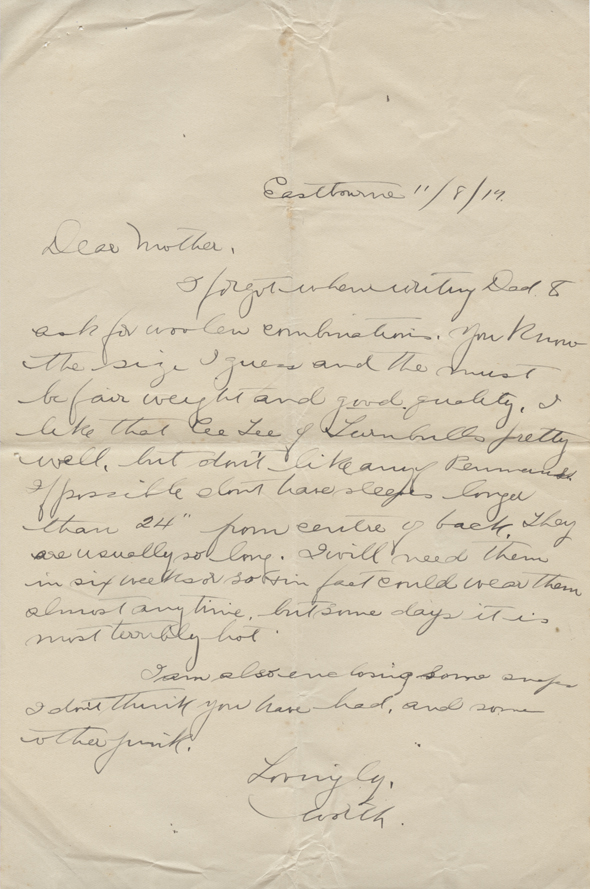 Eastbourne 11/8/17.
Dear Mother.
I forgot when writing Dad &
ask for woolen combinations. You know
the size I guess and the must
be fair weight and good quality. I
like that Cee Tee of Turnbulls pretty
well, but don't like any Penmans.
If possible dont have sleeves longer
than 24" from centre of back. They
are usually so long. I will need them
in six weeks or so & in fact could wear them
almost anytime, but some days it is
most terribly hot.
I am also enclosing some snaps
I don't think you have had, and some
other junk.
Lovingly,
Worth.